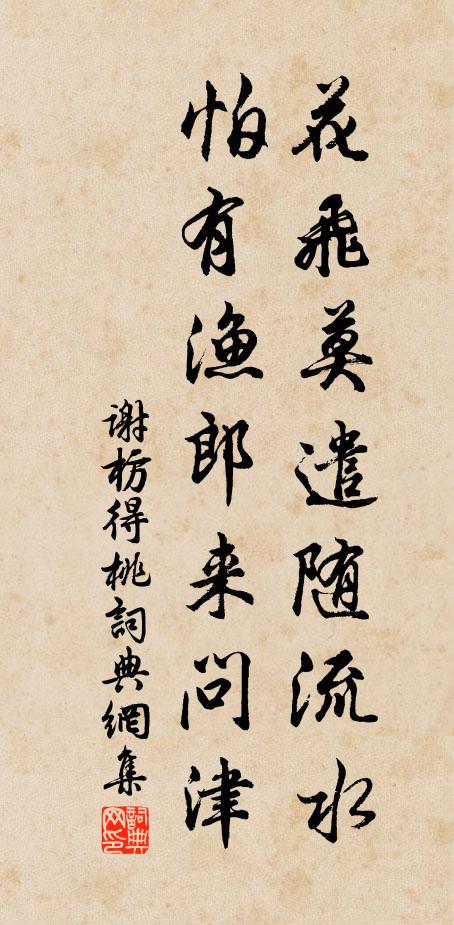 花飛莫遣随流水
怕有漁郎来问津
謝枋得桃詞典網集
詞典网印